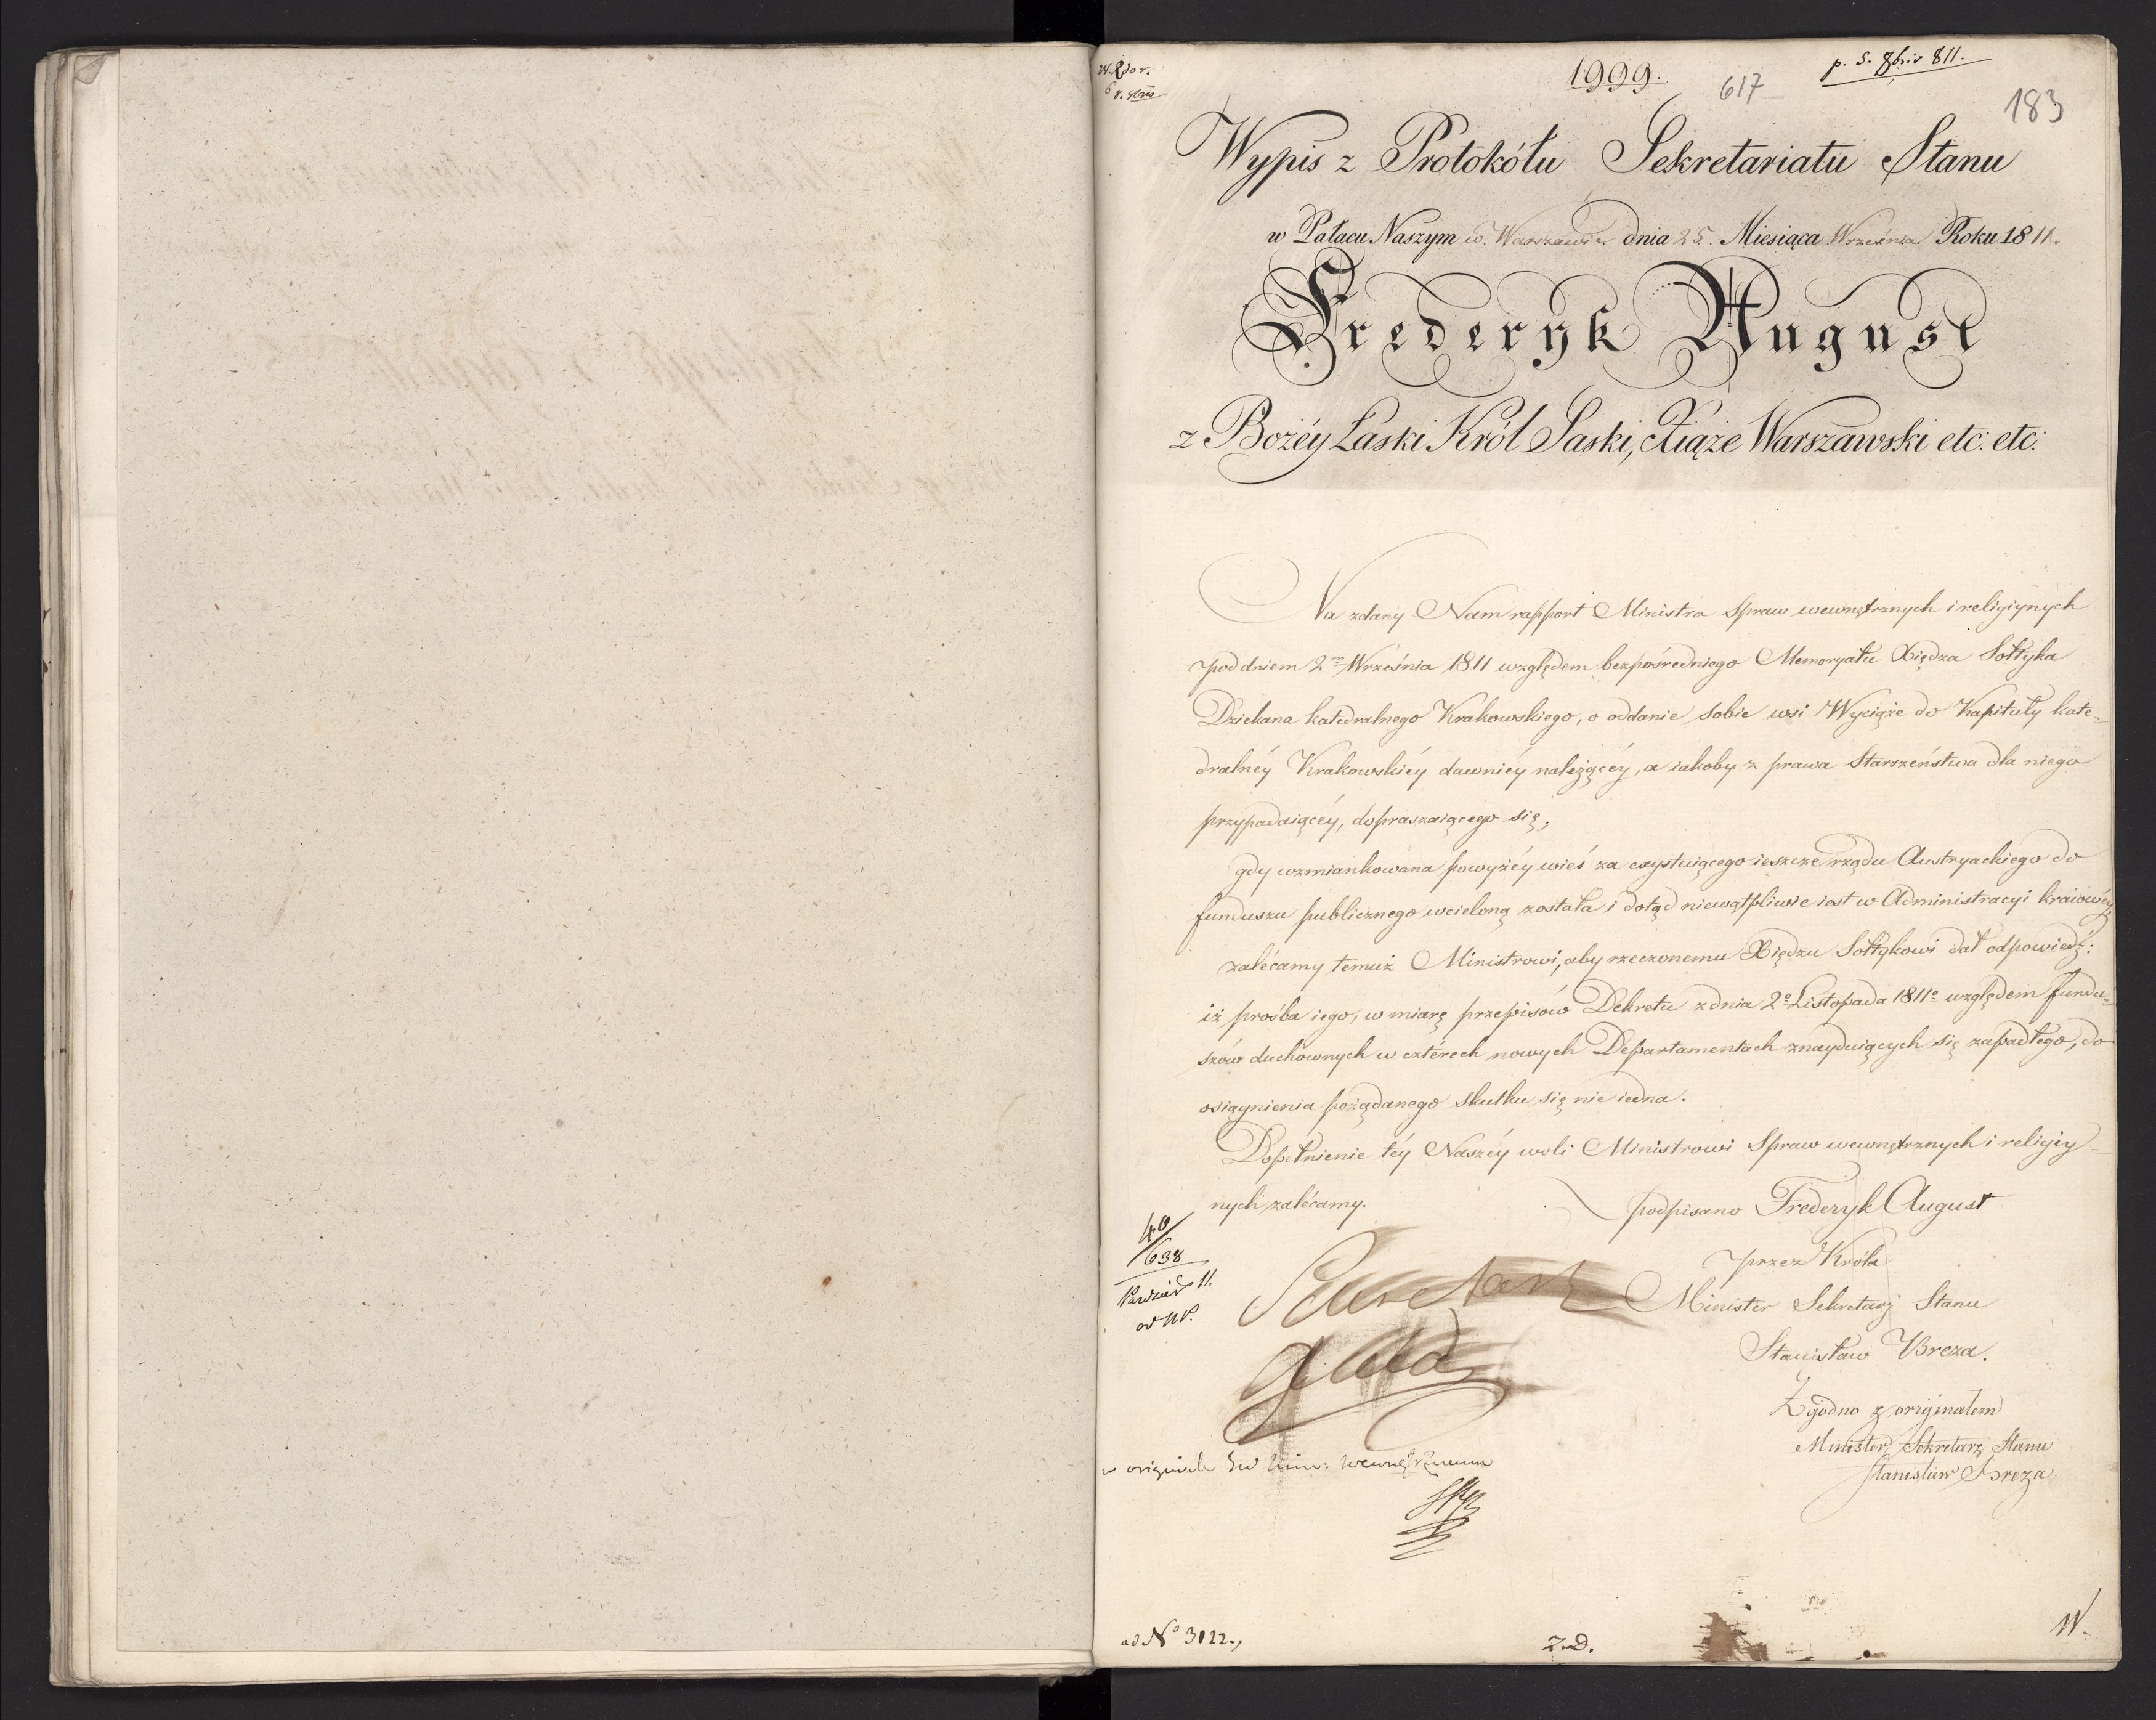 1999.
617
p. 5. 8bris 811.
183
Wypis z Protokółu Sekretariatu Stanu
w Pałacu Naszym w. Warszawie dnia 25. Miesiąca Września Roku 1811.
Frederyk August
z Bożéy Łaski Król Saski, Xiąże Warszawski etc: etc:
Na zdany Nam rapport Ministra Spraw wewnętrznych i religiynych
pod dniem 2m Września 1811 względem bezpośredniego Memoryału Xiędza Sołtyka
Dziekana katedralnego Krakowskiego, o oddanie sobie wsi Wyciąże do Kapituły kate=
dralnéy Krakowskiéy dawniéy należącéy, a iakoby z prawa Starszeństwa dla niego
przypadaiącéy, dopraszaiącego się;
gdy wzmiankowana powyżéy wieś za exystuiącego ieszcze rządu Austryackiego do
funduszu publicznego wcieloną została i dotąd niewątpliwie iest w Administracyi kraiowéy,
zalécamy temuż Ministrowi, aby rzeczonemu Xiędzu Sołtykowi dał odpowiedź:
iż prośba iego, w miarę przepisów Dekretu z dnia 2o Listopada 1811o względem fundu=
szów duchownych w cztérech nowych Departamentach znayduiących się zapadłego, do
osiągnienia pożądanego skutku się nie iedna.
Dopełnienie téy Naszéy woli Ministrowi Spraw wewnętrznych i religiy=
nych zalécamy.
podpisano Frederyk August
przez Króla
Minister Sekretarz Stanu
Stanisław Breza.
Zgodno z originałem
Minister Sekretarz Stanu
Stanisław Breza
40/638
w originale
ad No 3122.,
Z.D.
W.